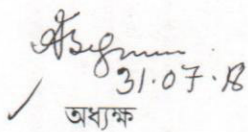 31.07.18
অধ্যক্ষ